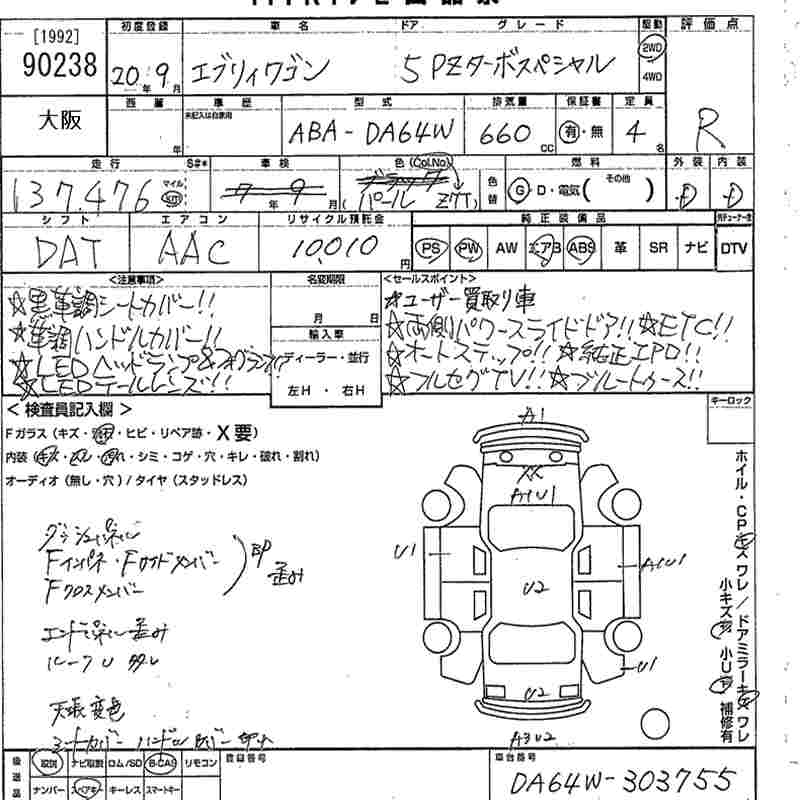 [1992]
90238
初度登録 車名 ドア グレード 駆動 評価点
20年9月 エブリィワゴン 5 PZターボスペシャル 2WD 4WD R
大阪
西暦 車歴 型式 排気量 保証書 定員
年 未記入は自家用 ABA-DA64W 660cc 有・無 4名
走行 S#* 車検 色(Col.No) 燃料 外装 内装
137,476 マイル km 7年9月 (パール Z7T) 色替 G・D・電気(その他) D D
シフト エアコン リサイクル預託金 純正装備品
DAT AAC 10,010円 PS PW AW エアB ABS 革 SR ナビ DTV
<注意事項> 名変期限 <セールスポイント>
☆黒革調シートカバー!!
☆革調ハンドルカバー!!
☆LEDヘッドランプ&フォグランプ!!
☆LEDテールレンズ!!
月 日
輸入車
ディーラー・並行
左H・右H
☆ユーザー買取り車
☆両側パワースライドドア!! ☆ETC!!
☆オートステップ!! ☆純正エアロ!!
☆フルセグTV!! ☆ブルートゥース!!
<検査員記入欄>
キーロック
Fガラス(キズ・・ヒビ・リペア跡・X要)
内装(キズ・・汚れ・シミ・コゲ・穴・キレ・破れ・割れ)
オーディオ(無し・穴)/タイヤ(スタッドレス)
ダッシュパネル
Fインパネ・Fサイドメンバー
Fクロスメンバー
歪み
エンドパネル歪み
ルーフU
天張変色
シートカバー ハンドルカバー
A1
XX
A1U1
U1
A1U1
U2
U1
U2
A3U2
ホイル・CPキズワレ/ドアミラーキズワレ
小キズ有 小U有 補修有
後送品 取説 ナビ取説 ロム/SD B-CAS リモコン 登録番号 車台番号
ナンバー スペアキー キーレス スマートキー DA64W-303755